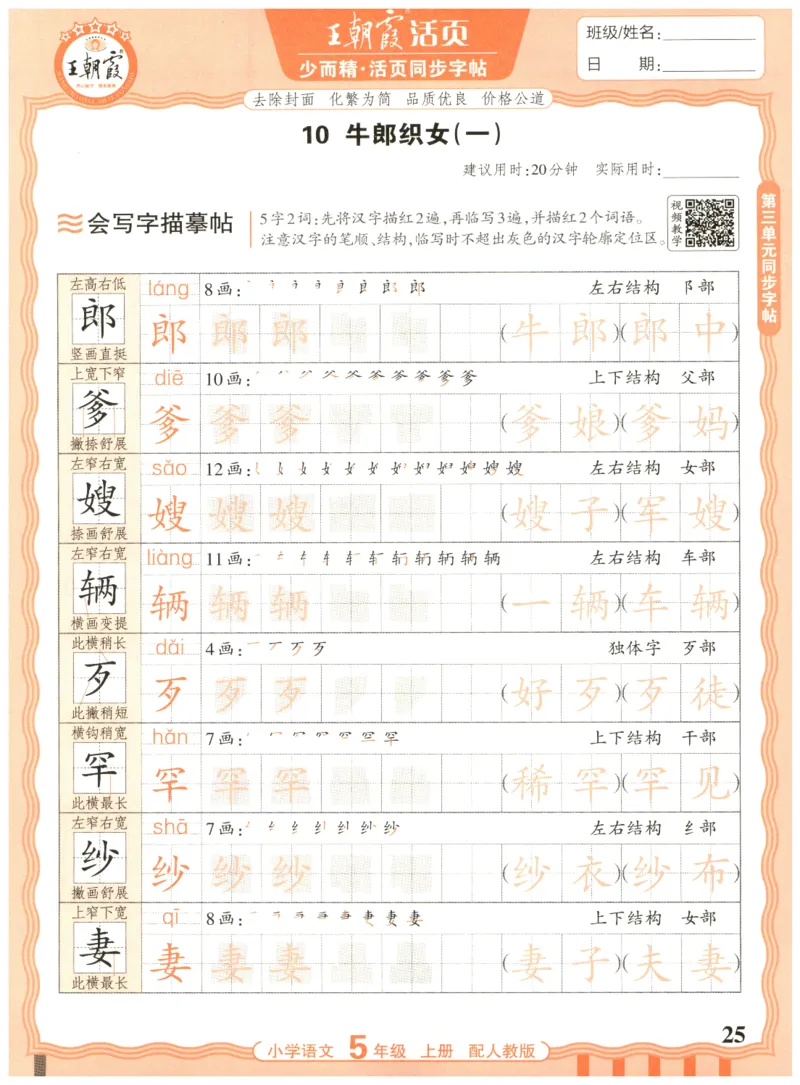 王朝霞
王朝霞活页
少而精·活页同步字帖
班级/姓名:
日 期:
去除封面 化繁为简 品质优良 价格公道
10 牛郎织女(一)
建议用时:20分钟 实际用时:
会写字描摹帖
5字2词:先将汉字描红2遍,再临写3遍,并描红2个词语。
注意汉字的笔顺、结构,临写时不超出灰色的汉字轮廓定位区。
视频教学
第三单元同步字帖
左高右低 láng 8画: 郎 左右结构 阝部
郎 郎 郎 郎 (牛郎)(郎中)
竖画直挺
上宽下窄 diē 10画: 爹 上下结构 父部
爹 爹 爹 爹 (爹娘)(爹妈)
撇捺舒展
左窄右宽 sǎo 12画: 嫂 左右结构 女部
嫂 嫂 嫂 嫂 (嫂子)(军嫂)
捺画舒展
左窄右宽 liàng 11画: 辆 左右结构 车部
辆 辆 辆 辆 (一辆)(车辆)
横画变提
此横稍长 dǎi 4画: 一 丆 歹 歹 独体字 歹部
歹 歹 歹 歹 (好歹)(歹徒)
此撇稍短
横钩稍宽 hǎn 7画: 罕 上下结构 干部
罕 罕 罕 罕 (稀罕)(罕见)
此横最长
左窄右宽 shā 7画: 纱 左右结构 纟部
纱 纱 纱 纱 (纱衣)(纱布)
撇画舒展
上窄下宽 qī 8画: 妻 上下结构 女部
妻 妻 妻 妻 (妻子)(夫妻)
此横最长
25
小学语文 5年级 上册 配人教版